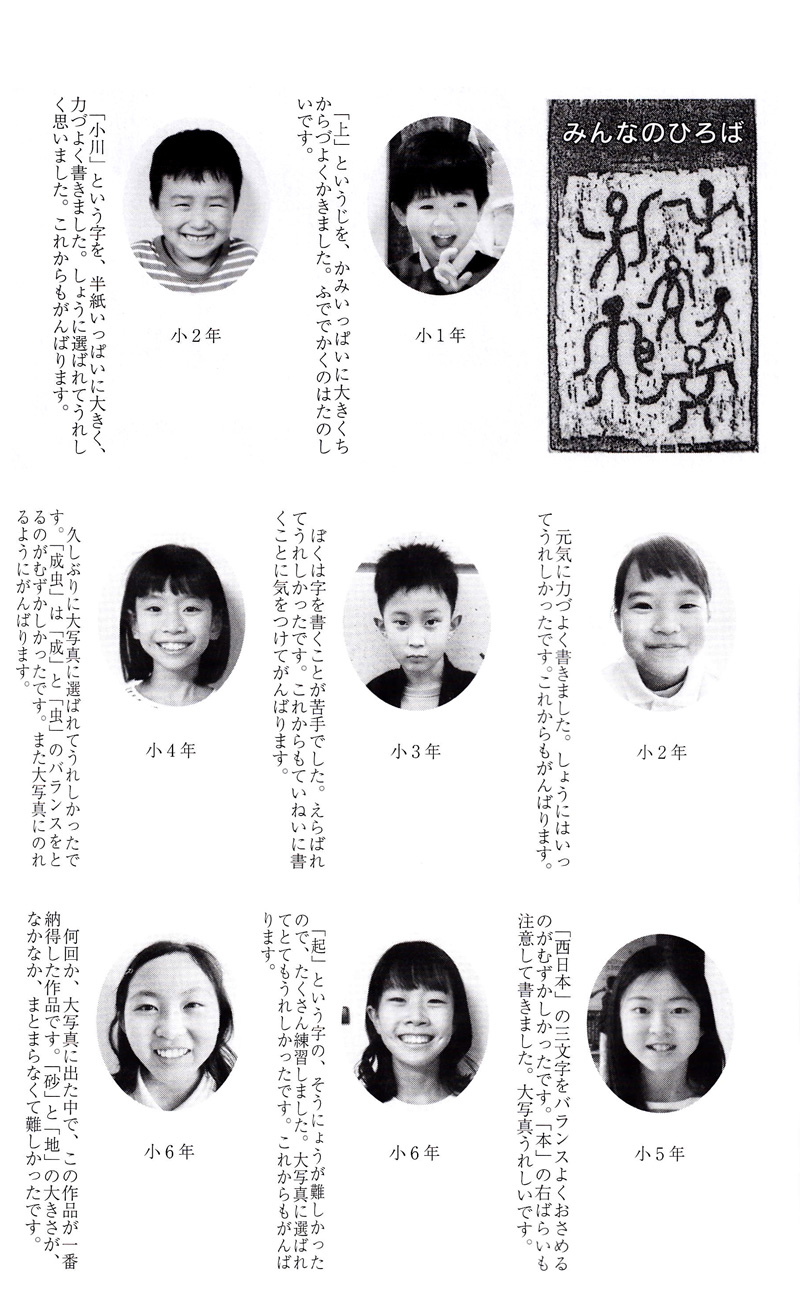 みんなのひろば
小1年
「上」というじを、かみいっぱいに大きくち
からづよくかきました。ふででかくのはたのし
いです。
小2年
「小川」という字を、半紙いっぱいに大きく、
力づよく書きました。しょうに選ばれてうれし
く思いました。これからもがんばります。
小2年
元気に力づよく書きました。しょうにはいっ
てうれしかったです。これからもがんばります。
小3年
ぼくは字を書くことが苦手でした。えらばれ
てうれしかったです。これからもていねいに書
くことに気をつけてがんばります。
小4年
久しぶりに大写真に選ばれてうれしかったで
す。「成虫」は「成」と「虫」のバランスをと
るのがむずかしかったです。また大写真にのれ
るようにがんばります。
小5年
「西日本」の三文字をバランスよくおさめる
のがむずかしかったです。「本」の右ばらいも
注意して書きました。大写真うれしいです。
小6年
「起」という字の、そうにょうが難しかった
ので、たくさん練習しました。大写真に選ばれ
てとてもうれしかったです。これからもがんば
ります。
小6年
何回か、大写真に出た中で、この作品が一番
納得した作品です。「砂」と「地」の大きさが、
なかなか、まとまらなくて難しかったです。